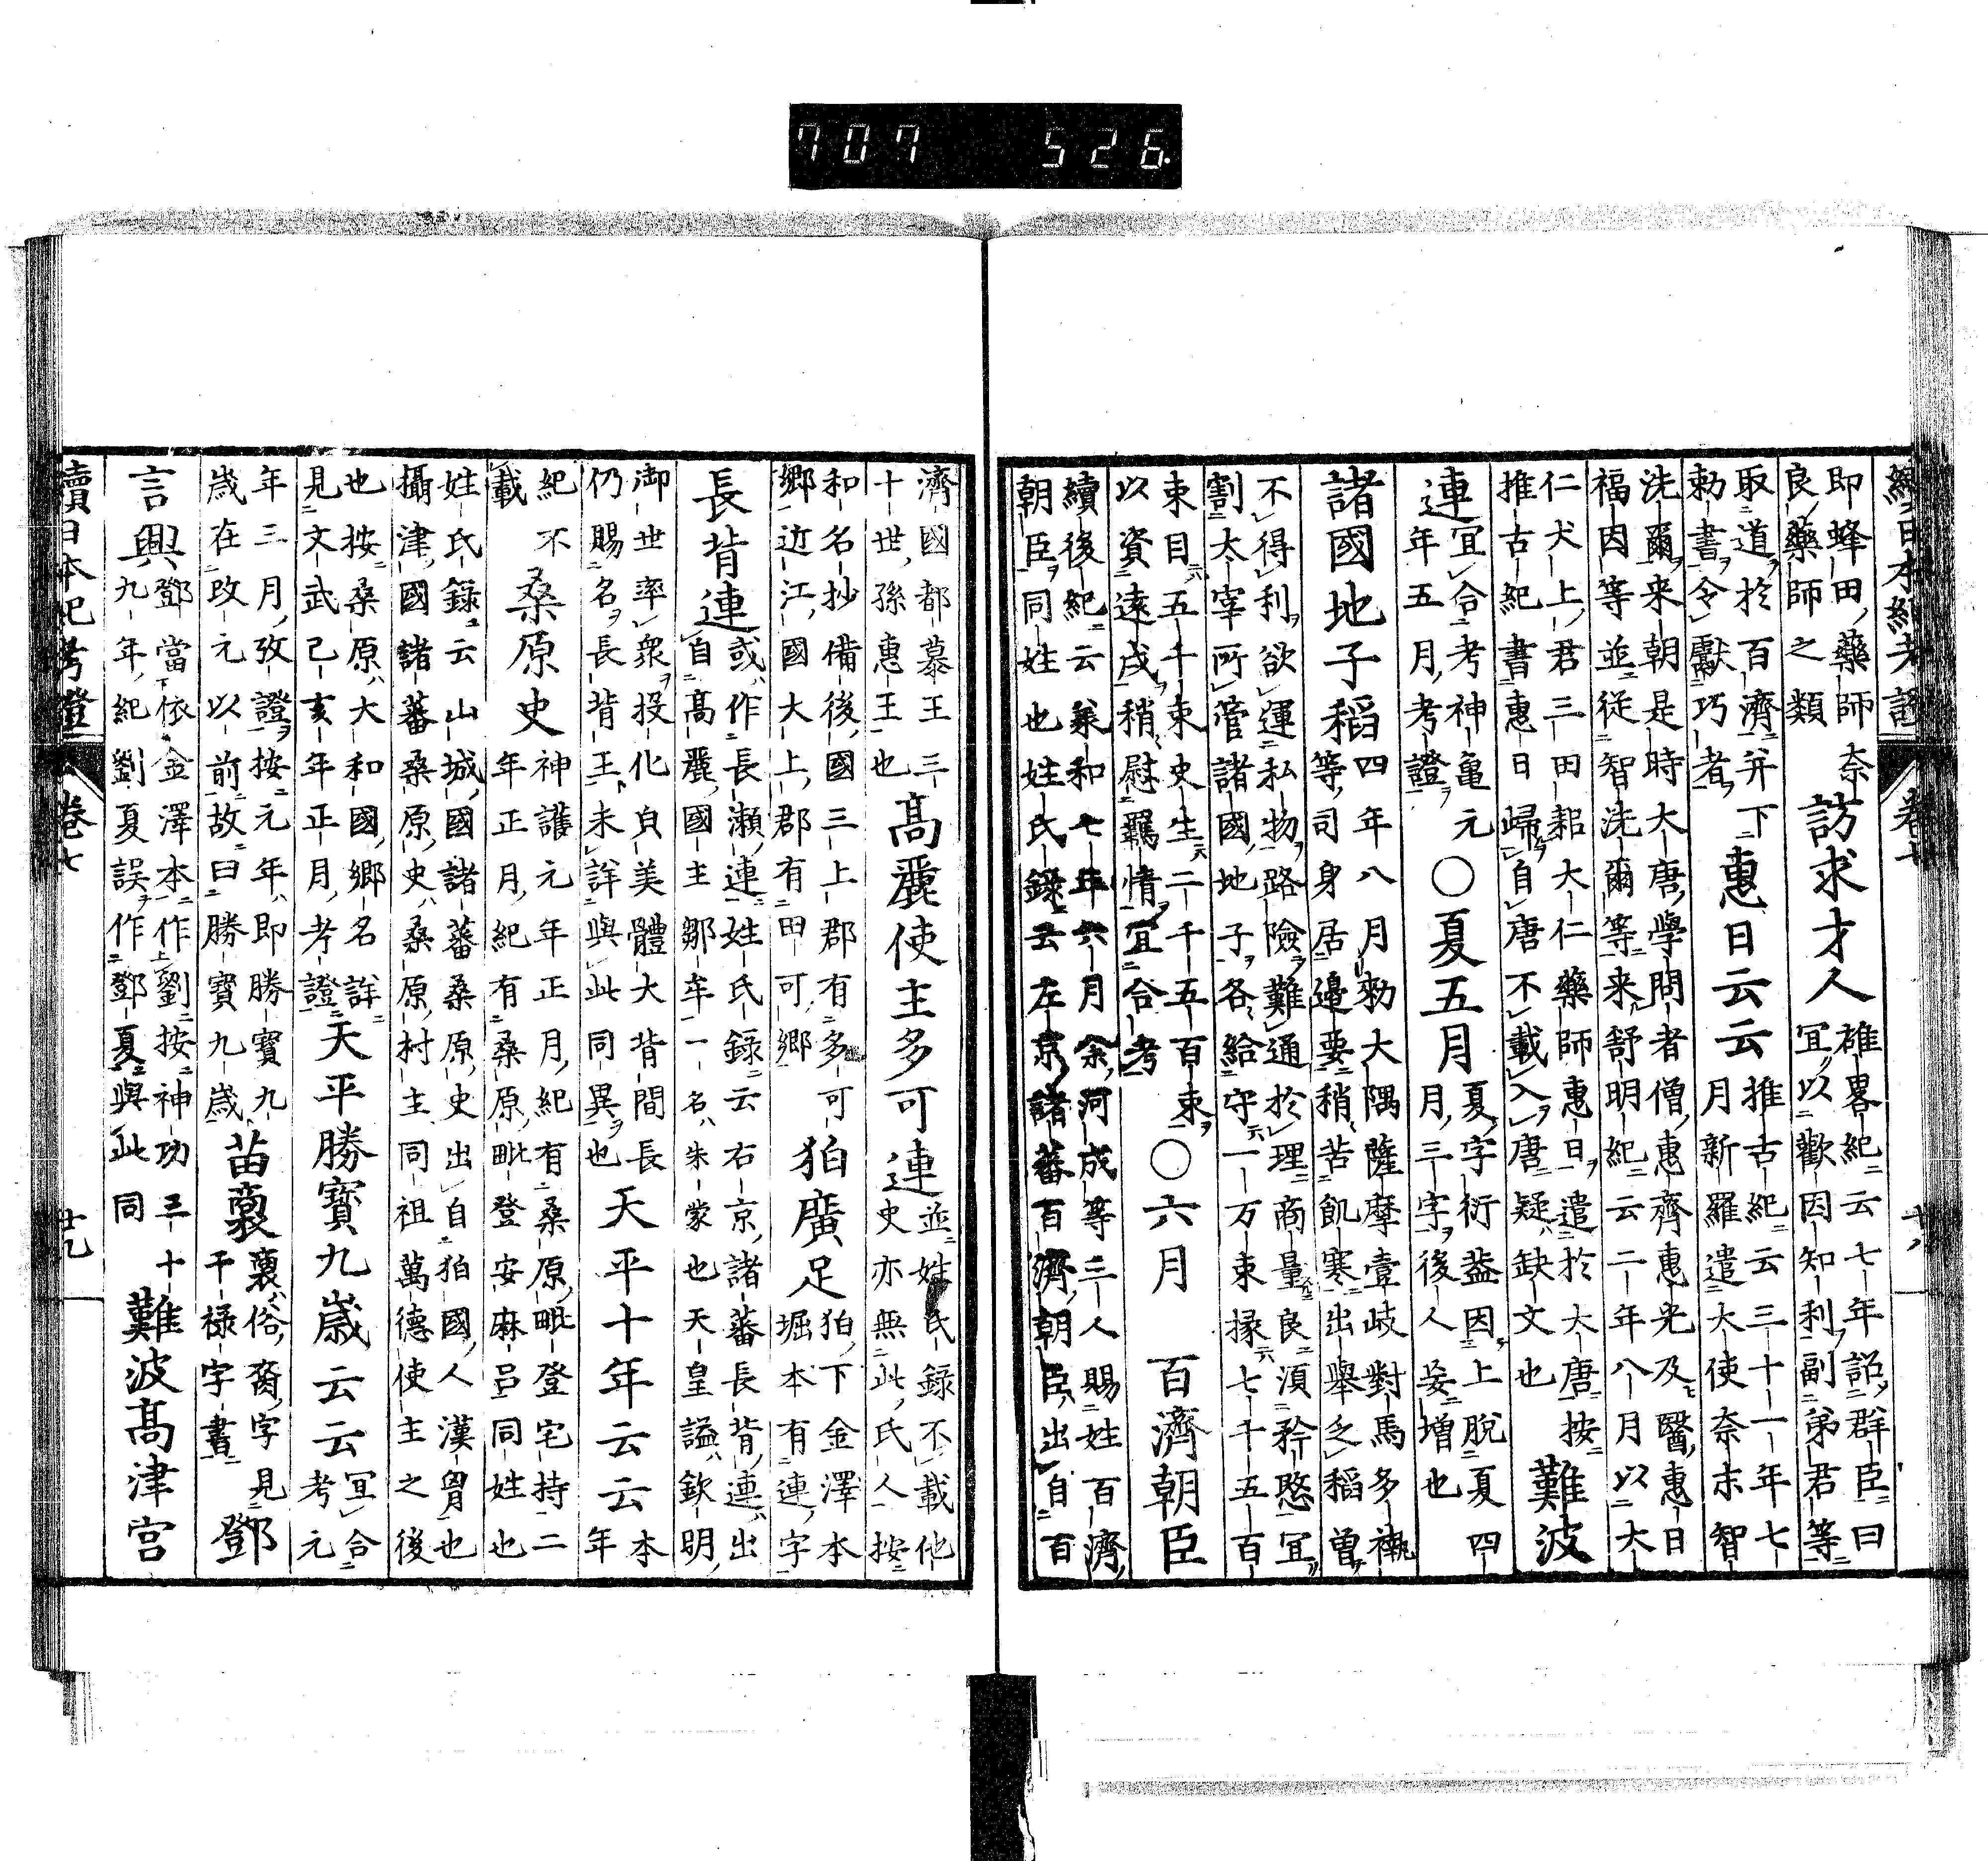 續日本紀考證 卷七 廿八
即蜂田藥師奈
良藥師之類
訪求才人
雄畧紀云七年詔群臣曰
宜以歡因知利副弟君等
取道於百濟并下
勅書令獻巧者
惠日云云
推古紀云三十一年七
月新羅遣大使奈末智
洗爾来朝是時大唐學問者僧惠齊惠光及醫惠日
福因等並從智洗爾等来舒明紀云二年八月以大
仁犬上君三田耜大仁藥師惠日遣於大唐按
推古紀書惠日歸自唐不載入唐疑缺文也
難波
連
宜合考神亀元
年五月考證
○夏五月
夏字衍葢因上脫夏四
月三字後人妄增也
諸國地子稻
四年八月勅大隅薩摩壹岐對馬多褹
等司身居邊要稍苦飢寒出舉乏稻曽
不得利欲運私物路險難通於理商量良湏矜愍宜
割太宰所管諸國地子各給守一万束掾七千五百
束目五千束史生二千五百束
以資遠戍稍慰羈情宜合考
○六月
百濟朝臣
續後紀云承和七年六月余河成等三人賜姓百濟
朝臣同姓也姓氏録云左京諸蕃百濟朝臣出自百
濟國都慕王三
十世孫惠王也
髙麗使主多可連
並姓氏録不載他
史亦無此氏人按
和名抄備後國三上郡有多可
郷近江國大上郡有田可郷
狛廣足
狛下金澤本
堀本有連字
長背連
或作長瀬連姓氏録云右京諸蕃長背連出
自髙麗國主鄒牟一名朱蒙也天皇謚欽明
御世率衆投化皃美體大背間長
仍賜名長背王未詳與此同異也
天平十年云云
本
年
紀不
載
桑原史
神護元年正月紀有桑原毗登宅持二
年正月紀有桑原毗登安麻呂同姓也
姓氏録云山城國諸蕃桑原史出自狛國人漢胷也
攝津國諸蕃桑原史桑原村主同祖萬德使主之後
也按桑原大和國郷名詳
見文武己亥年正月考證
天平勝寶九歳云云
宜合
考元
年三月攷證按元年即勝寶九
歳在攻元以前故曰勝寶九歳
苗褭
褭俗裔字見
干禄字書
鄧
言興
鄧當依金澤本作劉按神功三十
九年紀劉夏誤作鄧夏與此同
難波髙津宮
續日本紀考證 卷七 廿九
707 526